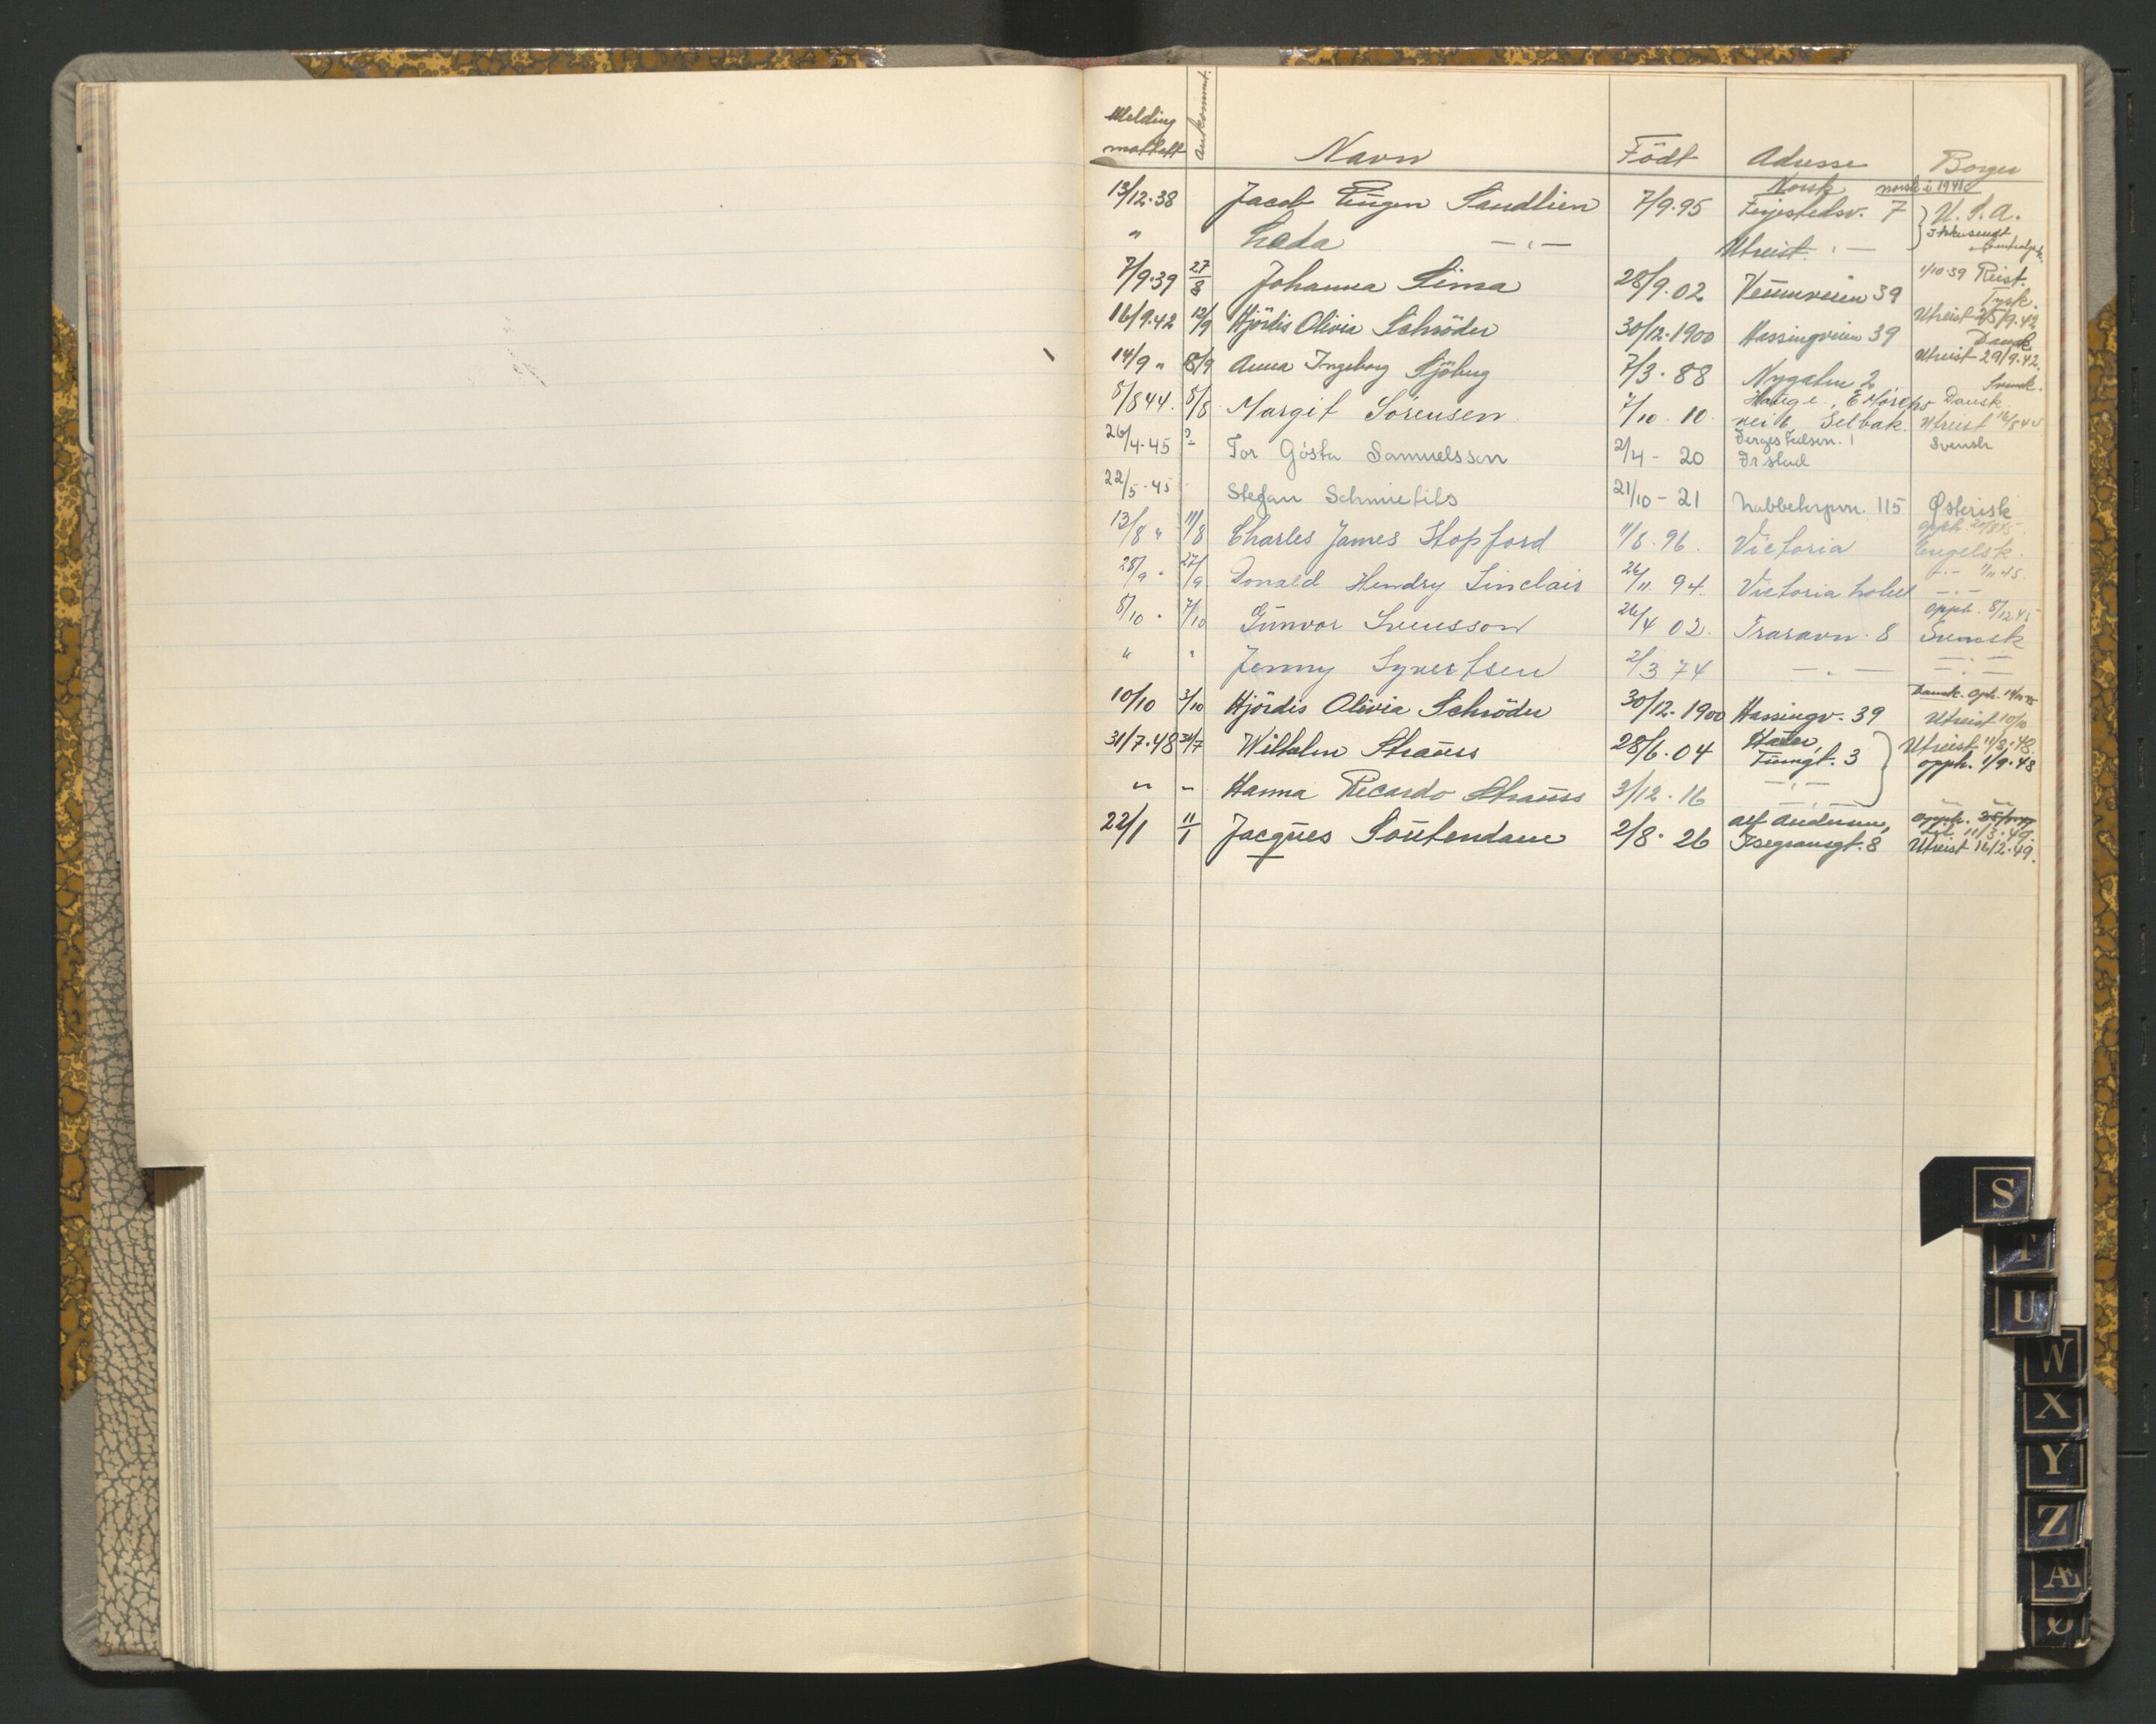 Melding mottatt ankommet. Navn Födt Adresse Borger
13/12.38 Jacob Eugen Sandlien 7/9.95 Norsk norsk i 1941
Ferjestedsv. 7 U.S.A.
" Leda —"— Utreist. —
7/9.39 27/8 Johanna Sima 28/9.02 Veumveien 39 1/10.39 Reist. Tysk.
16/9.42 12/9 Hjördis Olivia Schröder 30/12.1900 Hassingveien 39 Utreist 25/9.42 Dansk
14/9 " 8/9 Anna Ingeborg Sjöberg 7/3.88 Nygaten 2 Utreist 29/9.42. Svensk.
5/8 44. 5/8 Margit Sörensen 7/10.10. Selbak. Dansk Utreist
26/4-45 ? Tor Gösta Samuelsson 2/4-20 Svensk
22/5-45 Stefan 21/10-21 115 Østerisk
13/8 " 11/8 Charles James Stopford 11/8.96. Victoria Engelsk.
28/9 " 27/9 Donald Hendry Sinclair 26/11 94. Victoria hotel —"—
8/10 " 7/10 Gunvor Svensson 26/4 02. Traravn. 8 opph. 8/12 45 Svensk
" " Jenny Syvertsen 2/3 74 —"— —"—
10/10 3/10 Hjördis Olivia Schröder 30/12.1900 Hassingv. 39 Dansk. Utreist 10/10
31/7.48 31/7 Wilhelm Strauss 28/6.04 3 Utreist 11/8.48. opph. 1/9.48
" " Hanna Ricardo Strauss 3/12.16 —"—
22/1 11/1 Jacques Soutendam 2/8.26 Alf Andersen, Isegransgt. 8 opph. til 11/3.49. Utreist 16/2.49.
S
T
U
W
X
Y
Z
Æ
Ø